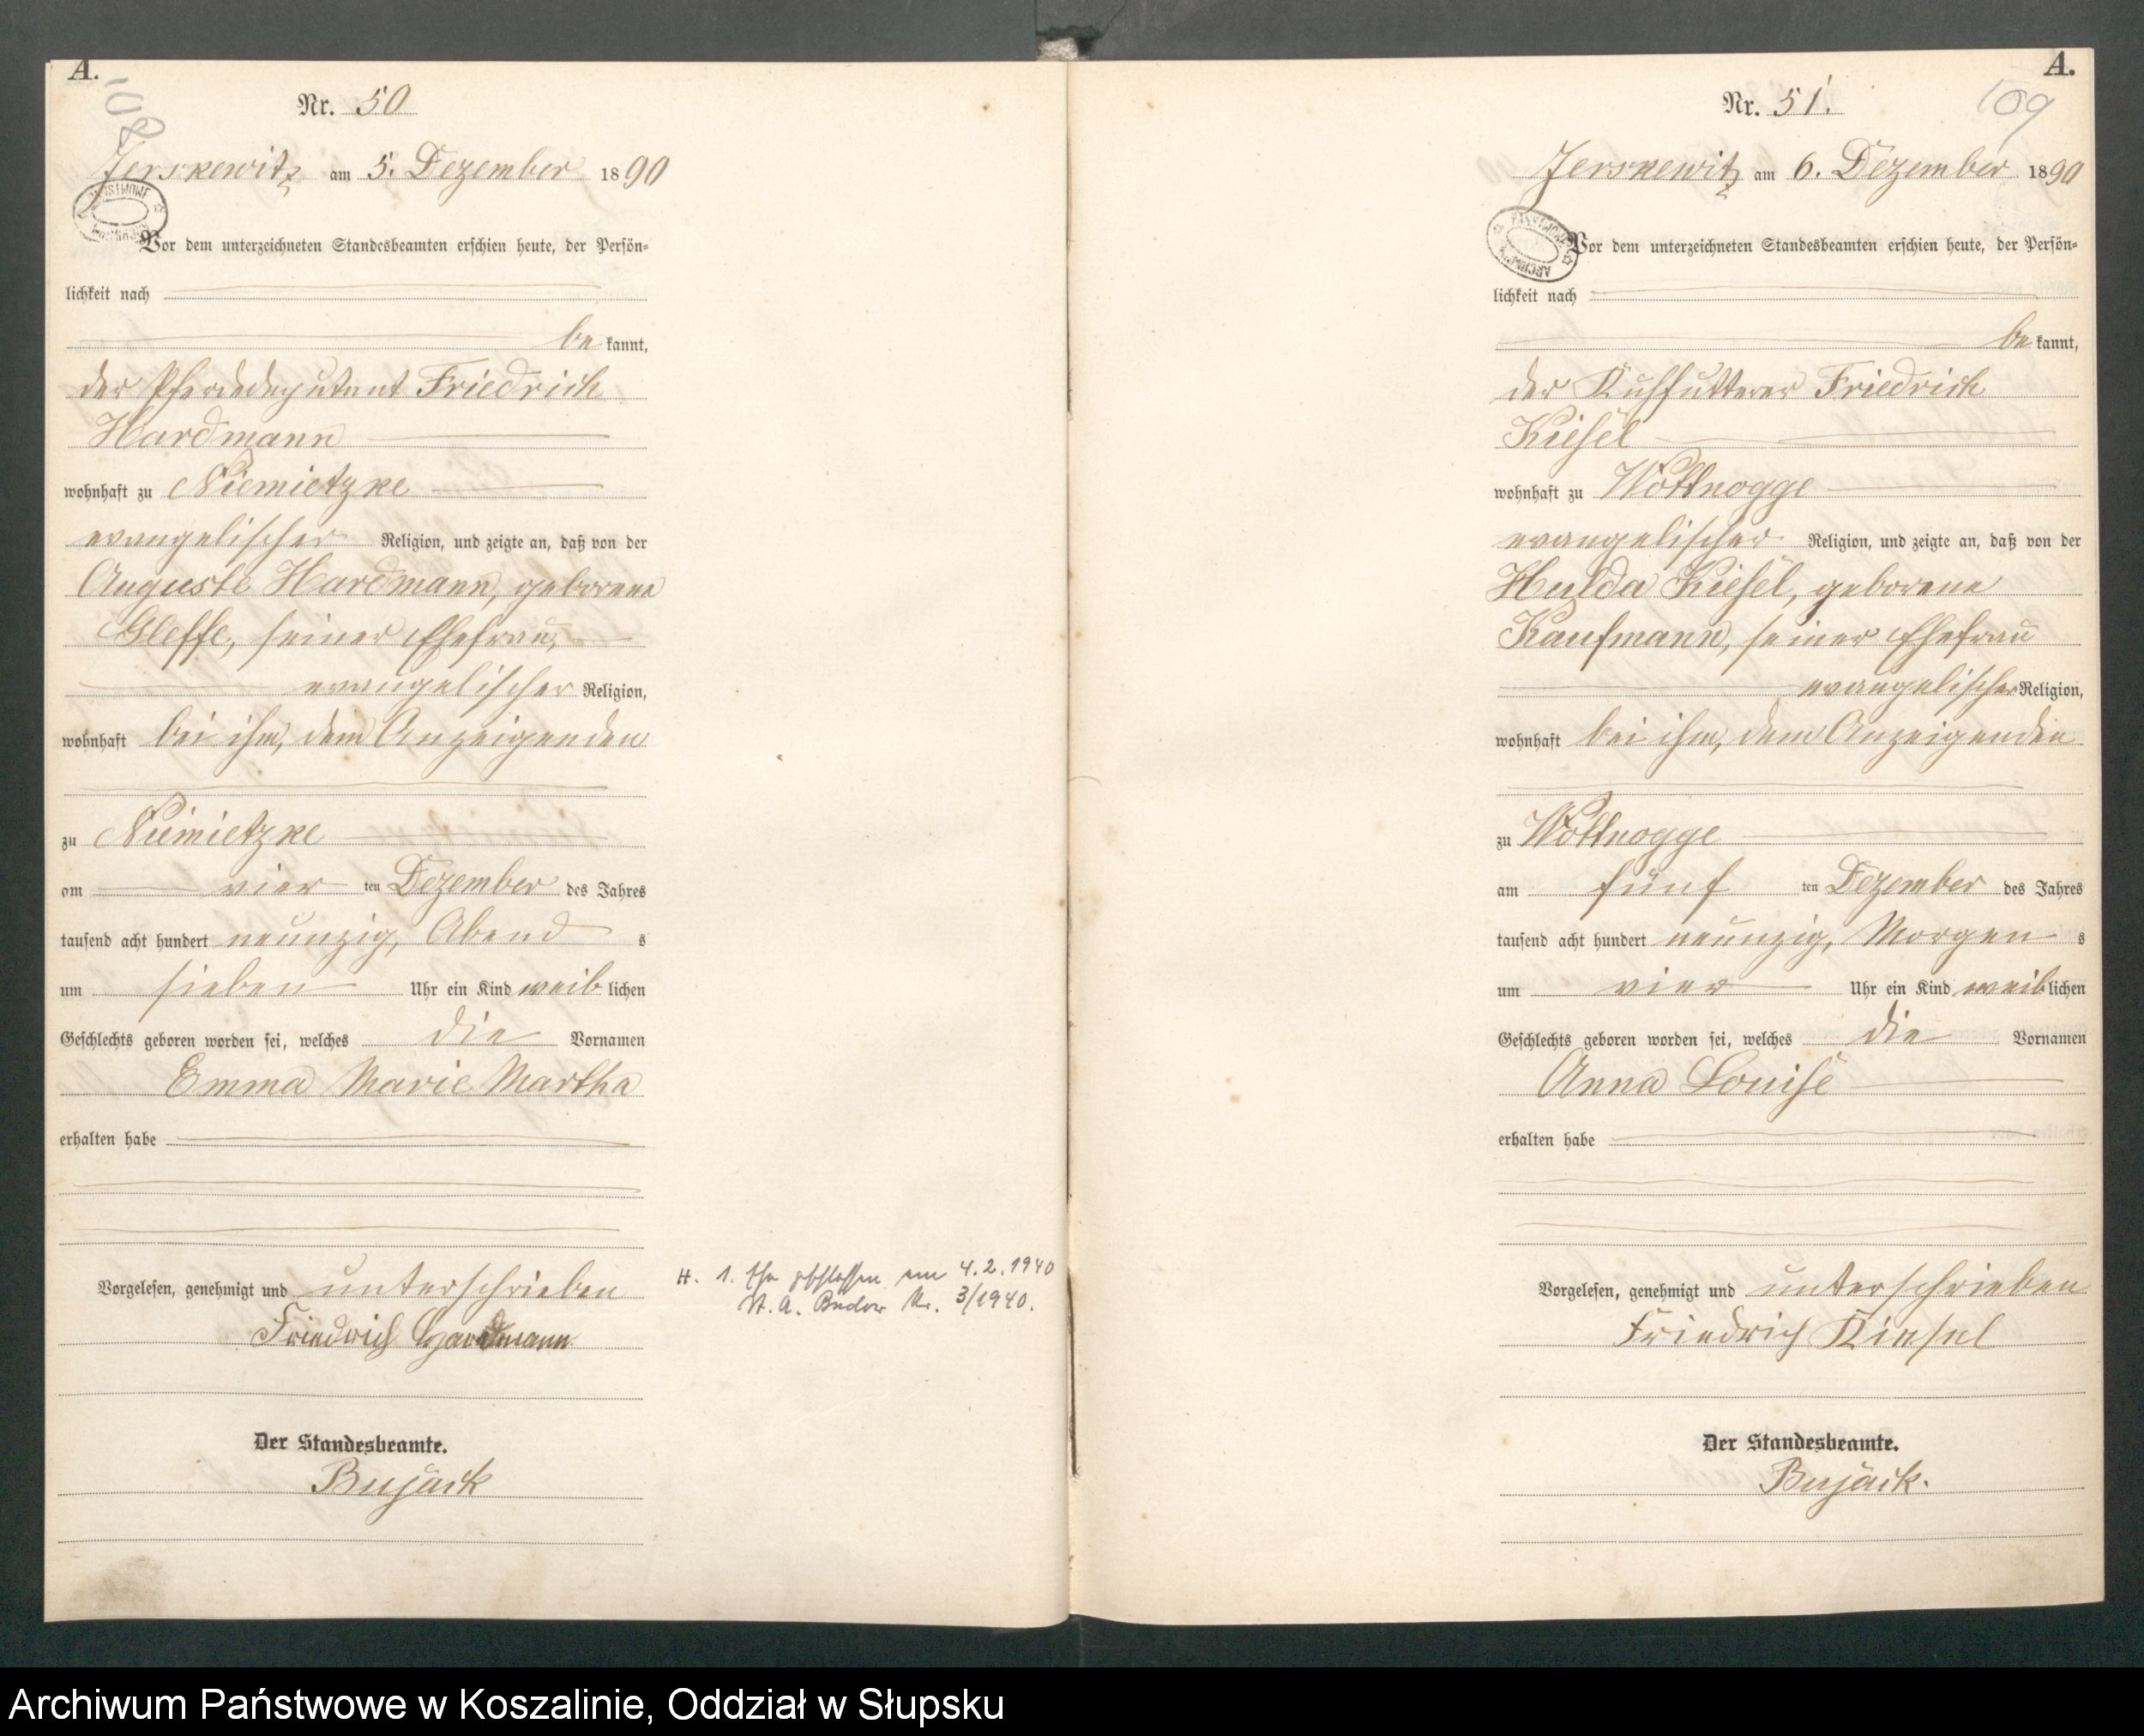 A.
108
Nr. 50
Jerskewitz am 5. Dezember 1890
Vor dem unterzeichneten Standesbeamten erschien heute, der Persön-
lichkeit nach
be kannt,
der Pferdedeputant Friedrich
Hardmann
wohnhaft zu Niemietzke
evangelischer Religion, und zeigte an, daß von der
Auguste Hardmann, geborene
Gleffe, seiner Ehefrau,
evangelischer Religion,
wohnhaft bei ihm, dem Anzeigenden
zu Niemietzke
am vier ten Dezember des Jahres
tausend acht hundert neunzig, Abend s
um sieben Uhr ein Kind weib lichen
Geschlechts geboren worden sei, welches die Vornamen
Emma Marie Martha
erhalten habe
Vorgelesen, genehmigt und unterschrieben
Friedrich Hardmann
Der Standesbeamte.
Bujack
H. 1. Ehe geschlossen am 4.2.1940
St. A. Budow Nr. 3/1940.
A.
109
Nr. 51.
Jerskewitz am 6. Dezember 1890
ARCHIWUM
Vor dem unterzeichneten Standesbeamten erschien heute, der Persön-
lichkeit nach
be kannt,
der Kuhfutterer Friedrich
Kiesel
wohnhaft zu Wottnogge
evangelischer Religion, und zeigte an, daß von der
Hulda Kiesel, geborene
Kaufmann, seiner Ehefrau
evangelischer Religion,
wohnhaft bei ihm, dem Anzeigenden
zu Wottnogge
am fünf ten Dezember des Jahres
tausend acht hundert neunzig, Morgen s
um vier Uhr ein Kind weib lichen
Geschlechts geboren worden sei, welches die Vornamen
Anna Louise
erhalten habe
Vorgelesen, genehmigt und unterschrieben
Friedrich Kiesel
Der Standesbeamte.
Bujack.
Archiwum Państwowe w Koszalinie, Oddział w Słupsku